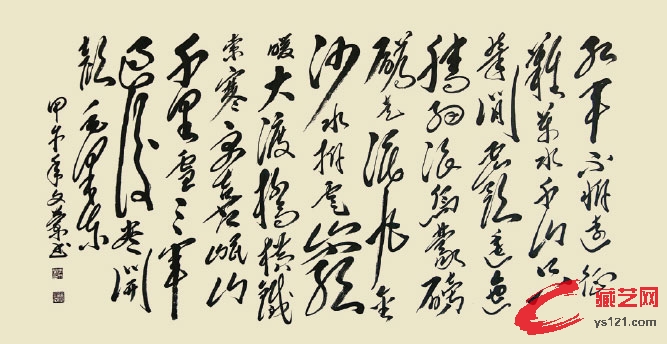 红军不怕远征
難萬水千山只
等闲五嶺逶迤
腾细浪烏蒙磅
礴走泥丸金
沙水拍雲崖
暖大渡橋横鐵
索寒更喜岷山
千里雪三軍
过後尽開
颜 毛泽东
甲午年文荣书
藏艺网
ys121.com